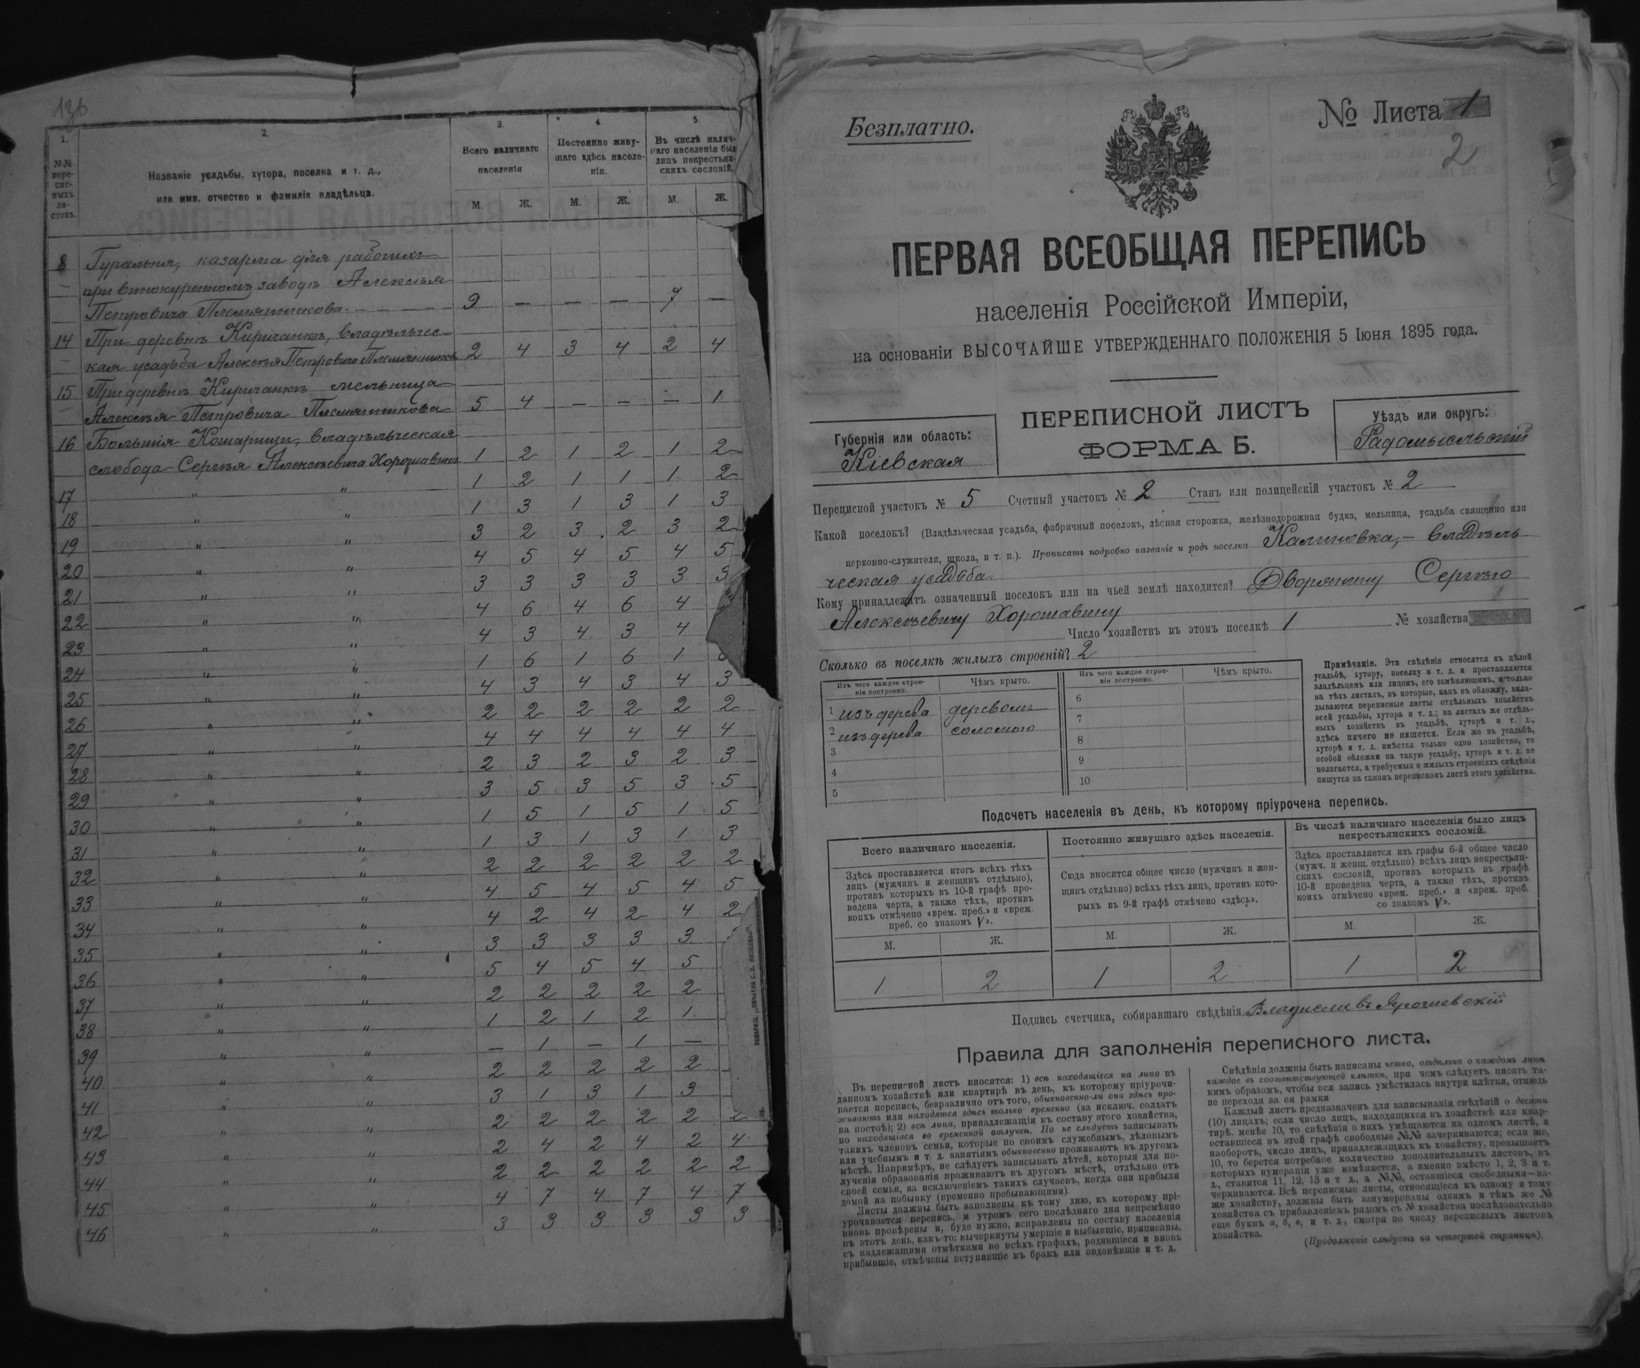 1.
2.
3.
4
5.
№№ пере-
пис-
ныхъ
ли-
стовъ.
Названіе усадьбы, хутора, поселка и т. д.,
или имя, отчество и фамилія владѣльца.
Всего наличнаго
населенія
Постоянно живу-
щаго здѣсь населе-
нія.
Въ числѣ налич-
наго населенія был
лицъ некрестьян-
скихъ сословій.
М. Ж. М. Ж. М. Ж.
8 Гуральня, казарма для рабочихъ
при винокуренномъ заводѣ Алексѣя
Петровича Племянникова 9 — — — 7 —
14 При деревнѣ Киричанкѣ, владѣльчес-
кая усадьба Алексѣя Петровича Племянникова 2 4 3 4 2 4
15 При деревнѣ Киричанкѣ мельница
Алексѣя Петровича Племянникова 5 4 — — — 1
16 Большія Кошарищи, владѣльческая
слобода Сергѣя Алексѣевича Хорошавина 1 2 1 2 1 2
17 " " 1 2 1 1 1 2
18 " " 1 3 1 3 1 3
19 " " 3 2 3 2 3 2
20 " " 4 5 4 5 4 5
21 " " 3 3 3 3 3 3
22 " " 4 6 4 6 4
23 " " 4 3 4 3 4
24 " " 1 6 1 6 1
25 " " 4 3 4 3 4 3
26 " " 2 2 2 2 2 2
27 " " 4 4 4 4 4 4
28 " " 2 3 2 3 2 3
29 " " 3 5 3 5 3 5
30 " " 1 5 1 5 1 5
31 " " 1 3 1 3 1 3
32 " " 2 2 2 2 2 2
33 " " 4 5 4 5 4 5
34 " " 4 2 4 2 4 2
35 " " 3 3 3 3 3
36 " " 5 4 5 4 5
37 " " 2 2 2 2 2
38 " " 1 2 1 2 1
39 " " — 1 — 1 —
40 " " 2 2 2 2 2
41 " " 3 1 3 1 3
42 " " 2 2 2 2 2 2
43 " " 2 4 2 4 2 4
44 " " 2 2 2 2 2 2
45 " " 4 7 4 7 4 7
46 " " 3 3 3 3 3 3
Безплатно.
№ Листа 1
2
ПЕРВАЯ ВСЕОБЩАЯ ПЕРЕПИСЬ
населенія Россійской Имперіи,
на основаніи ВЫСОЧАЙШЕ УТВЕРЖДЕННАГО ПОЛОЖЕНІЯ 5 Іюня 1895 года.
Губернія или область:
Кіевская
ПЕРЕПИСНОЙ ЛИСТЪ
ФОРМА Б.
Уѣздъ или округъ:
Радомысльскій
Переписной участокъ № 5 Счетный участокъ № 2 Станъ или полицейскій участокъ № 2
Какой поселокъ? (Владѣльческая усадьба, фабричный поселокъ, лѣсная сторожка, желѣзнодорожная будка, мельница, усадьба священно или
церковно-служителя, школа, и т. п.). Прописать подробно названіе и родъ поселка Калиновка, — владѣль-
ческая усадьба
Кому принадлежитъ означенный поселокъ или на чьей землѣ находится? Дворянину Сергѣю
Алексѣевичу Хорошавину
Число хозяйствъ въ этомъ поселкѣ 1 № хозяйства
Сколько въ поселкѣ жилыхъ строеній? 2
Изъ чего каждое строе-
ніе построено.
Чѣмъ крыто.
Изъ чего каждое строе-
ніе построено.
Чѣмъ крыто.
1 изъ дерева деревомъ 6
2 изъ дерева соломою 7
3 8
4 9
5 10
Примѣчаніе. Эти свѣдѣнія относятся къ цѣлой
усадьбѣ, хутору, поселку и т. д. и проставляются
владѣльцемъ или лицомъ, его замѣняющимъ, и только
на тѣхъ листахъ, въ которые, какъ въ обложку, вкла-
дываются переписные листы отдѣльныхъ хозяйствъ
всей усадьбы, хутора и т. д.; на листахъ же отдѣль-
ныхъ хозяйствъ въ усадьбѣ, хуторѣ и т. д.,
здѣсь ничего не пишется. Если же въ усадьбѣ,
хуторѣ и т. д. имѣется только одно хозяйство, то
особой обложки на такую усадьбу, хуторъ и т. д. не
полагается, а требуемыя о жилыхъ строеніяхъ свѣдѣнія
пишутся на самомъ переписномъ листѣ этого хозяйства.
Подсчетъ населенія въ день, къ которому пріурочена перепись.
Всего наличнаго населенія.
Здѣсь проставляется итогъ всѣхъ тѣхъ
лицъ (мужчинъ и женщинъ отдѣльно),
противъ которыхъ въ 10-й графѣ про-
ведена черта, а также тѣхъ, противъ
коихъ отмѣчено «врем. преб.» и «врем.
преб. со знакомъ V».
Постоянно живущаго здѣсь населенія.
Сюда вносится общее число (мужчинъ и жен-
щинъ отдѣльно) всѣхъ тѣхъ лицъ, противъ кото-
рыхъ въ 9-й графѣ отмѣчено «здѣсь».
Въ числѣ наличнаго населенія было лицъ
некрестьянскихъ сословій.
Здѣсь проставляется изъ графы 6-й общее число
(мужч. и женщ. отдѣльно) всѣхъ лицъ некрестьян-
скихъ сословій, противъ которыхъ въ графѣ
10-й проведена черта, а также тѣхъ, противъ
коихъ отмѣчено «врем. преб.» и «врем. преб.
со знакомъ V».
М. Ж. М. Ж. М. Ж.
1 2 1 2 1 2
Подпись счетчика, собиравшаго свѣдѣнія Владиславъ Ярошевскій
Правила для заполненія переписного листа.
Въ переписной листъ вносятся: 1) всѣ находящіеся на лицо въ
данномъ хозяйствѣ или квартирѣ въ день, къ которому пріурочи-
вается перепись, безразлично отъ того, обыкновенно-ли они здѣсь про-
живаютъ или находятся здѣсь только временно (за исключ. солдатъ
на постоѣ); 2) всѣ лица, принадлежащія къ составу этого хозяйства,
но находящіяся во временной отлучкѣ. Но не слѣдуетъ записывать
такихъ членовъ семьи, которые по своимъ служебнымъ, дѣловымъ
или учебнымъ и т. д. занятіямъ обыкновенно проживаютъ въ другомъ
мѣстѣ. Напримѣръ, не слѣдуетъ записывать дѣтей, которыя для по-
лученія образованія проживаютъ въ другомъ мѣстѣ, отдѣльно отъ
своей семьи, за исключеніемъ такихъ случаевъ, когда они прибыли
домой на побывку (временно пребывающими)
Листы должны быть заполнены къ тому дню, къ которому прі-
урочивается перепись, и утромъ сего послѣдняго дня непремѣнно
вновь провѣрены и, буде нужно, исправлены по составу населенія
въ этотъ день, какъ-то: вычеркнуты умершіе и выбывшіе, приписаны,
съ надлежащими отмѣтками во всѣхъ графахъ, родившіеся и вновь
прибывшіе, отмѣчены вступившіе въ бракъ или овдовѣвшіе и т. д.
Свѣдѣнія должны быть написаны четко, отдѣльно о каждомъ лицѣ
каждое въ соотвѣтствующей клѣткѣ, при чемъ слѣдуетъ писать та-
кимъ образомъ, чтобы вся запись умѣстилась внутри клѣтки, отнюдь
не переходя за ея рамки
Каждый листъ предназначенъ для записыванія свѣдѣній о десяти
(10) лицахъ; если число лицъ, находящихся въ хозяйствѣ или квар-
тирѣ, менѣе 10, то свѣдѣнія о нихъ умѣщаются на одномъ листѣ, и
оставшіеся въ этой графѣ свободные №№ зачеркиваются; если же,
наоборотъ, число лицъ, принадлежащихъ къ хозяйству, превышаетъ
10, то берется потребное количество дополнительныхъ листовъ, въ
которыхъ нумерація уже измѣняется, а именно вмѣсто 1, 2, 3 и т.
д., ставится 11, 12, 13 и т д., а №№, оставшіеся свободными—за-
черкиваются. Всѣ переписные листы, относящіеся къ одному и тому
же хозяйству, должны быть занумерованы однимъ и тѣмъ же №
хозяйства съ прибавленіемъ рядомъ съ № хозяйства послѣдовательно
еще буквъ а, б, в, и т. д., смотря по числу переписныхъ листовъ
хозяйства.
(Продолженіе слѣдуетъ на четвертой страницѣ).